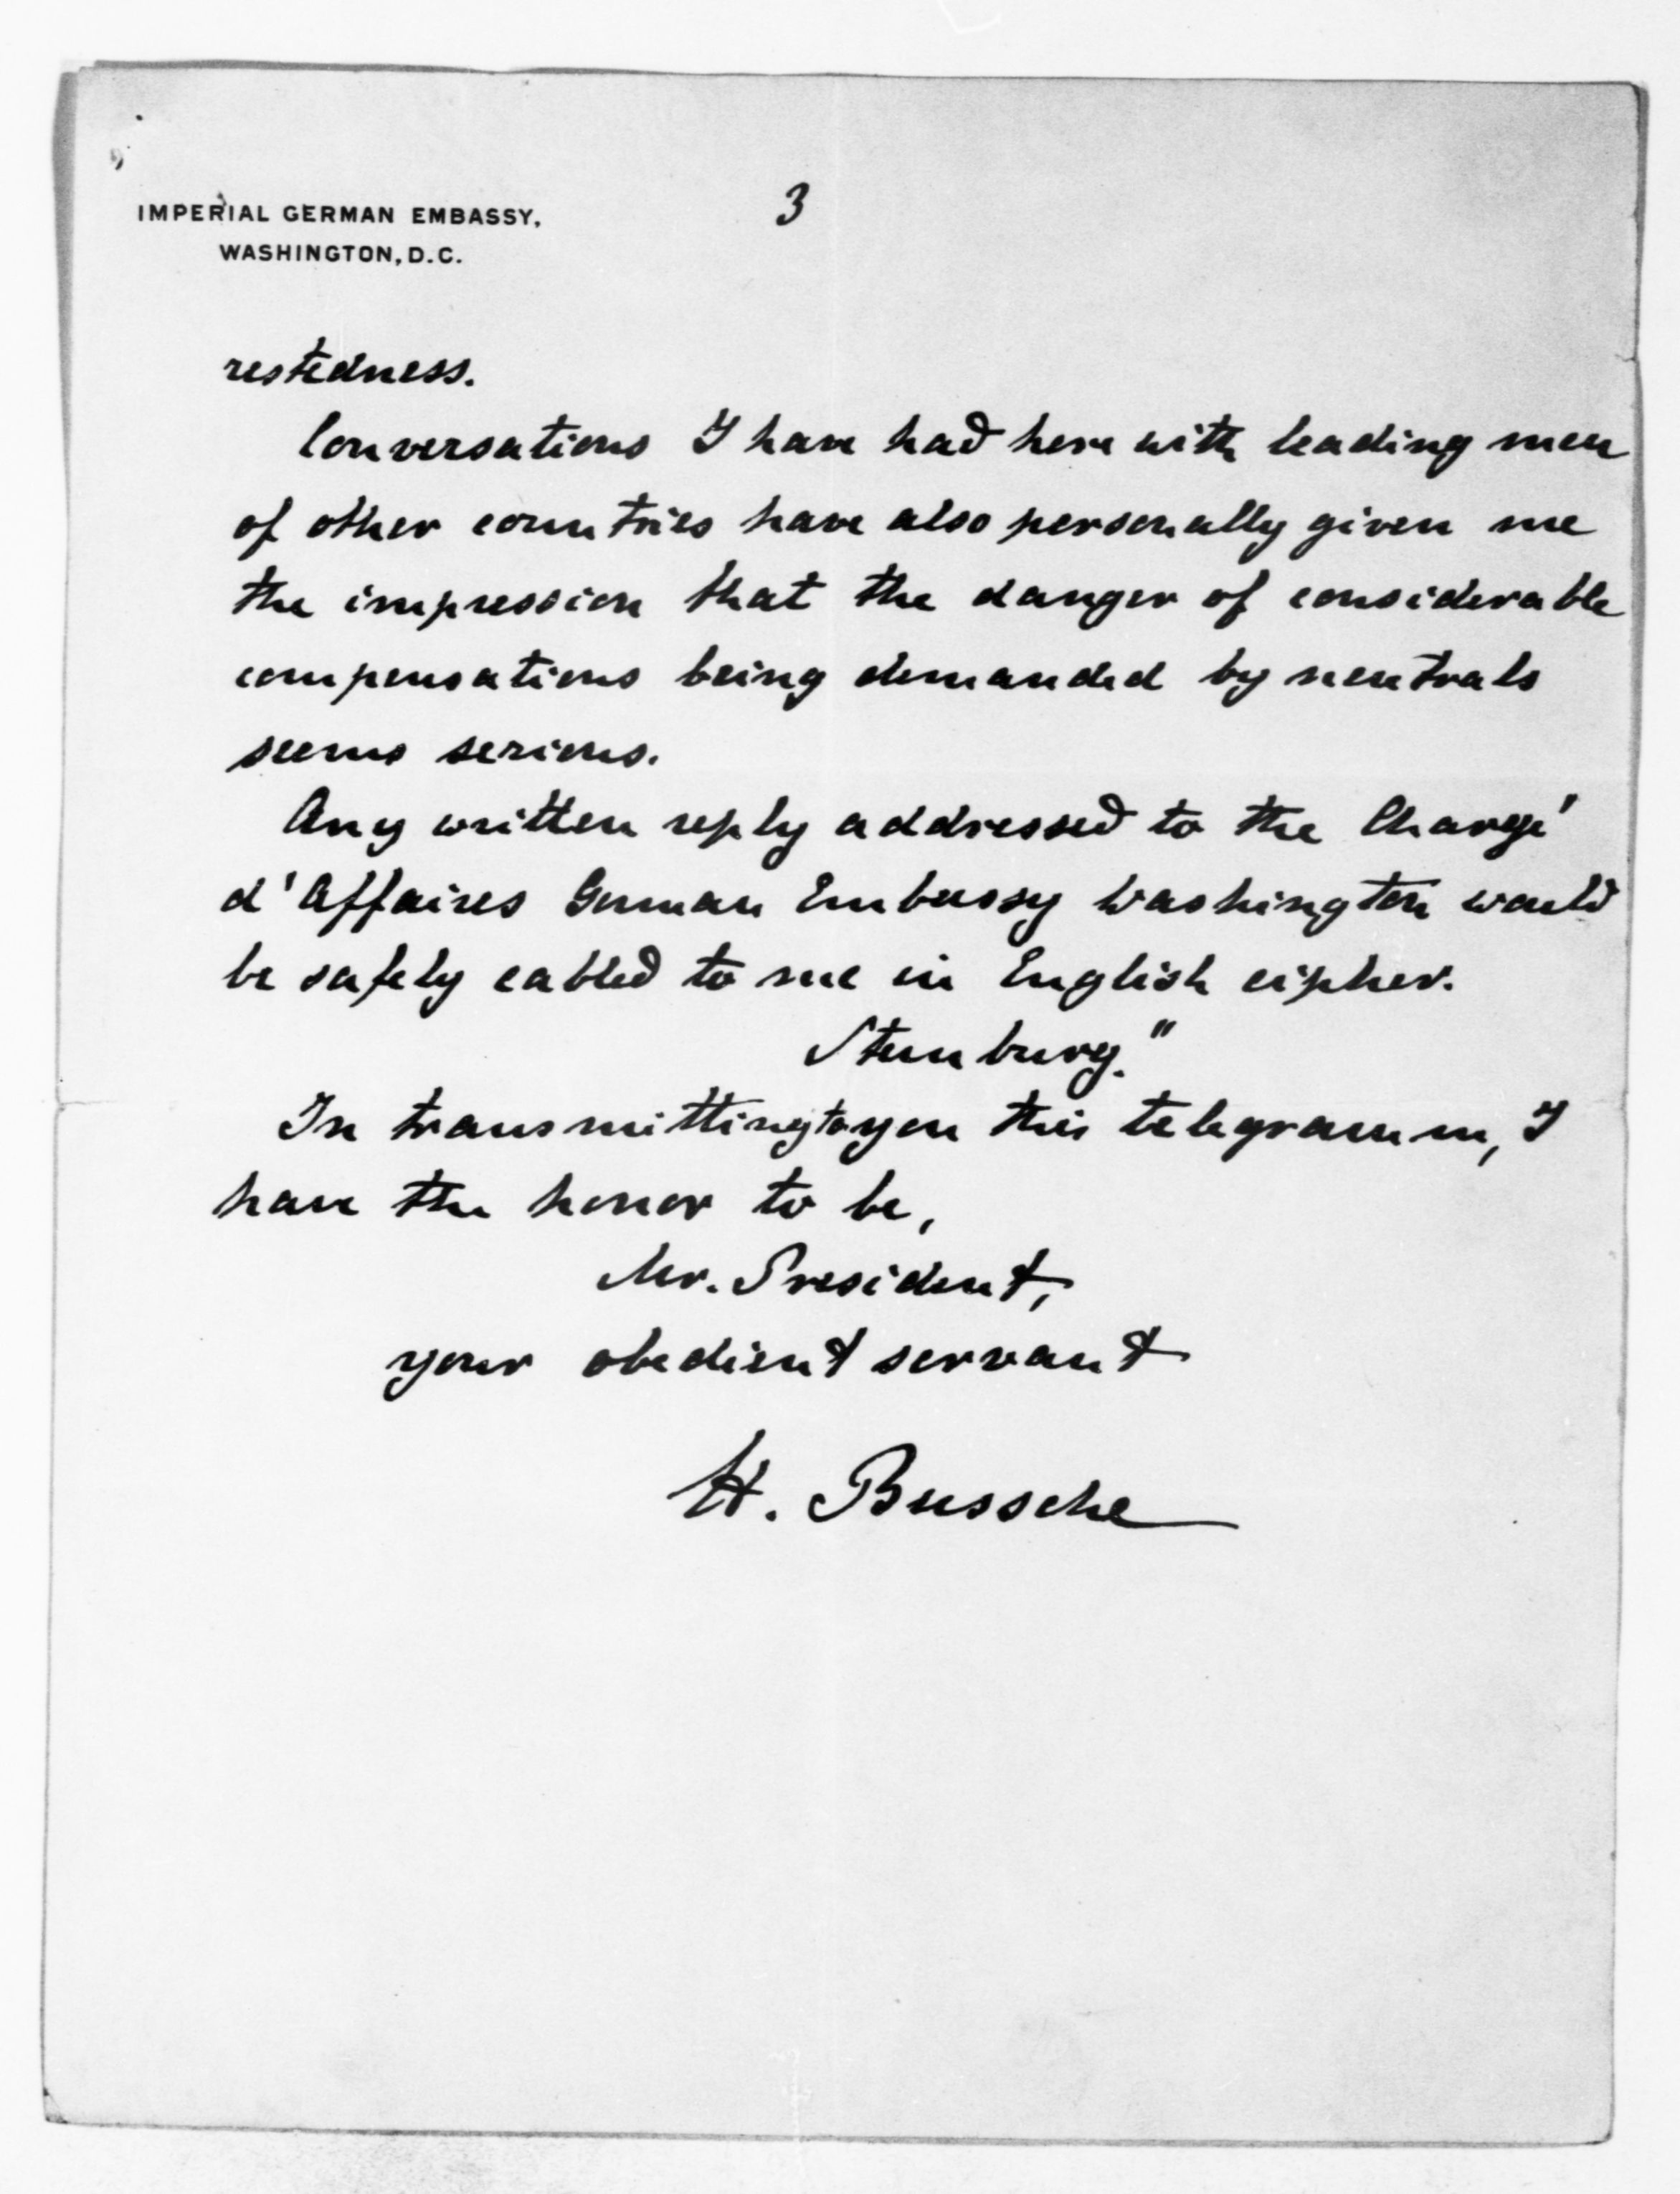 IMPERIAL GERMAN EMBASSY,
WASHINGTON, D.C.
3
restedness.
Conversations I have had here with leading men
of other countries have also personally given me
the impression that the danger of considerable
compensations being demanded by neutrals
seems serious.
Any written reply addressed to the Chargé
d'Affaires German Embassy Washington would
be safely cabled to me in English cipher.
Sternburg."
In transmitting to you this telegramm, I
have the honor to be,
Mr. President,
your obedient servant
H. Bussche